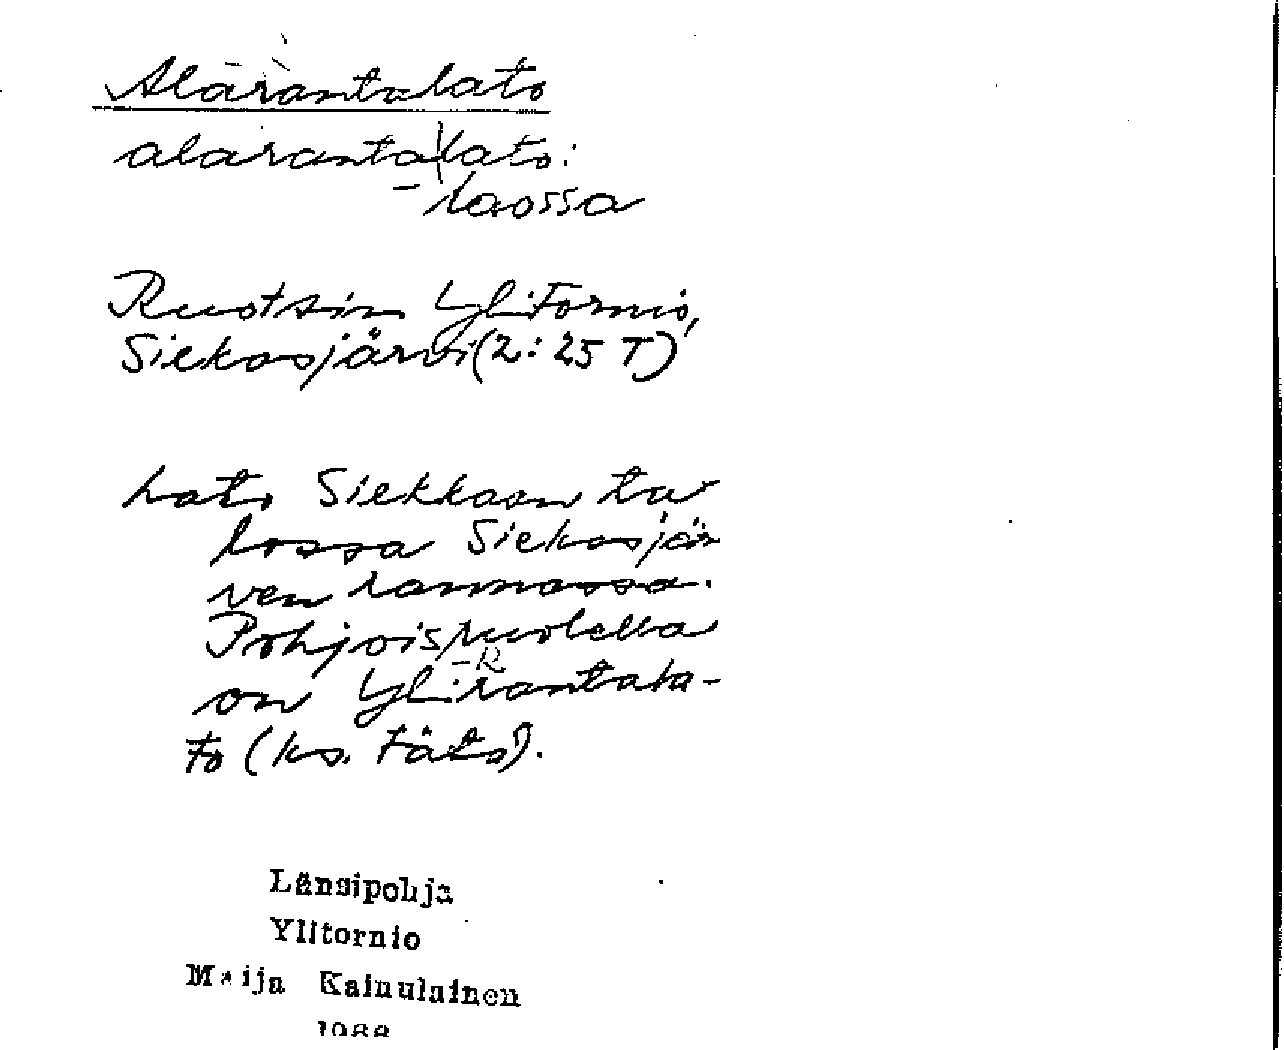 Alarantalato
alaranta|lato:
- laossa
Ruotsin Ylitornio,
Siekasjärvi (2: 25 T)
Lato Siekkaan ta-
lossa Siekasjär-
ven rannassa.
Pohjoispuolella
-R
on Ylirantala-
to (ks. tätä).
Länsipohja
Ylitornio
Maija Kainulainen
1968